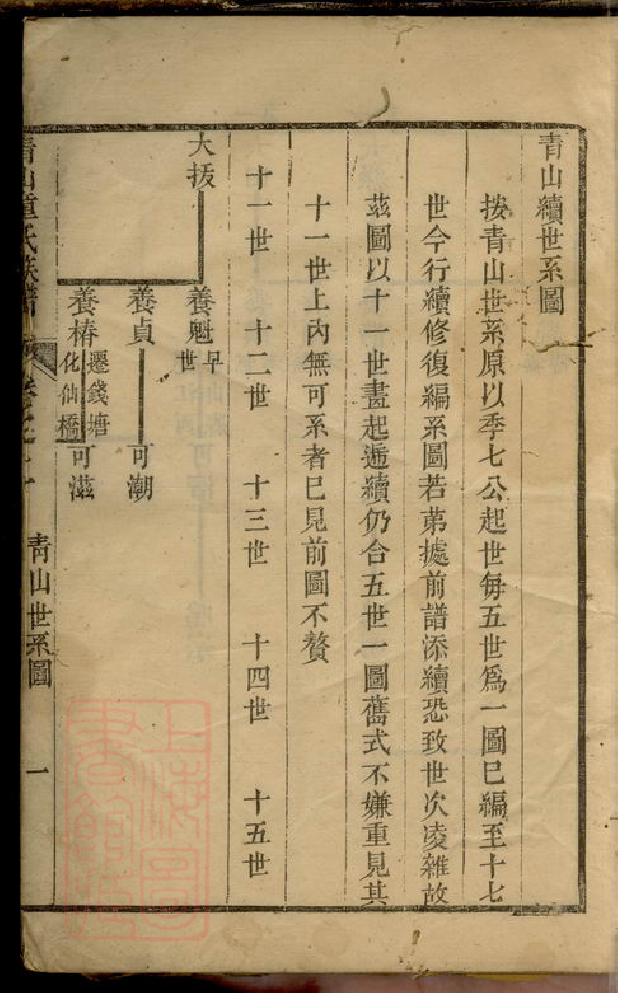 青山續世系圖
按青山世系原以季七公起世每五世為一圖巳編至十七
世今行續修復編系圖若苐據前譜添續恐致世次凌雜故
茲圖以十一世畫起遞續仍合五世一圖舊式不嫌重見其
十一世上內無可系者巳見前圖不贅
十一世 十二世 十三世 十四世 十五世
大振 養魁 早世
養貞 可潮
養椿 遷錢塘化仙橋 可滋
青山童氏族譜 青山世系圖 一
上海圖書館藏